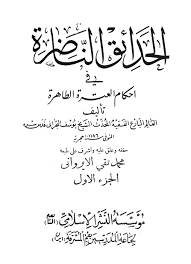 الحدائق الناضرة
في
احكام العترة الطاهرة
تأليف
العالم البارع الفقيه المحدث الشيخ يوسف البحراني قدس سره
المتوفى ١١٨٦ هجرية
حققه وعلق عليه وأشرف على طبعه
محمد تقي الايرواني
الجزء الاول
مؤسسة النشر الاسلامي
لجماعة المدرسين بقم المشرفة